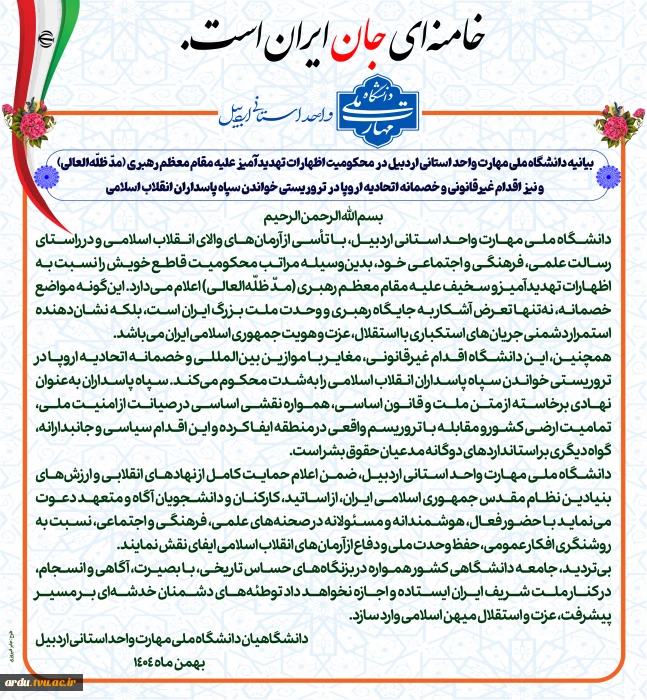 خامنه‌ای جان ایران است.
دانشگاه ملی مهارت
واحد استانی اردبیل
بیانیه دانشگاه ملی مهارت واحد استانی اردبیل در محکومیت اظهارات تهدیدآمیز علیه مقام معظم رهبری (مدّ ظلّه‌العالی)
و نیز اقدام غیرقانونی و خصمانه اتحادیه اروپا در تروریستی خواندن سپاه پاسداران انقلاب اسلامی
بسم‌الله الرحمن الرحیم
دانشگاه ملی مهارت واحد استانی اردبیل، با تأسی از آرمان‌های والای انقلاب اسلامی و در راستای
رسالت علمی، فرهنگی و اجتماعی خود، بدین‌وسیله مراتب محکومیت قاطع خویش را نسبت به
اظهارات تهدیدآمیز و سخیف علیه مقام معظم رهبری (مدّ ظلّه‌العالی) اعلام می‌دارد. این‌گونه مواضع
خصمانه، نه‌تنها تعرض آشکار به جایگاه رهبری و وحدت ملت بزرگ ایران است، بلکه نشان‌دهنده
استمرار دشمنی جریان‌های استکباری با استقلال، عزت و هویت جمهوری اسلامی ایران می‌باشد.
همچنین، این دانشگاه اقدام غیرقانونی، مغایر با موازین بین‌المللی و خصمانه اتحادیه اروپا در
تروریستی خواندن سپاه پاسداران انقلاب اسلامی را به‌شدت محکوم می‌کند. سپاه پاسداران به‌عنوان
نهادی برخاسته از متن ملت و قانون اساسی، همواره نقشی اساسی در صیانت از امنیت ملی،
تمامیت ارضی کشور و مقابله با تروریسم واقعی در منطقه ایفا کرده و این اقدام سیاسی و جانبدارانه،
گواه دیگری بر استانداردهای دوگانه مدعیان حقوق بشر است.
دانشگاه ملی مهارت واحد استانی اردبیل، ضمن اعلام حمایت کامل از نهادهای انقلابی و ارزش‌های
بنیادین نظام مقدس جمهوری اسلامی ایران، از اساتید، کارکنان و دانشجویان آگاه و متعهد دعوت
می‌نماید با حضور فعال، هوشمندانه و مسئولانه در صحنه‌های علمی، فرهنگی و اجتماعی، نسبت به
روشنگری افکار عمومی، حفظ وحدت ملی و دفاع از آرمان‌های انقلاب اسلامی ایفای نقش نمایند.
بی‌تردید، جامعه دانشگاهی کشور همواره در بزنگاه‌های حساس تاریخی، با بصیرت، آگاهی و انسجام،
در کنار ملت شریف ایران ایستاده و اجازه نخواهد داد توطئه‌های دشمنان خدشه‌ای بر مسیر
پیشرفت، عزت و استقلال میهن اسلامی وارد سازد.
دانشگاهیان دانشگاه ملی مهارت واحد استانی اردبیل
بهمن ماه ۱۴۰۴
ardu.tvu.ac.ir